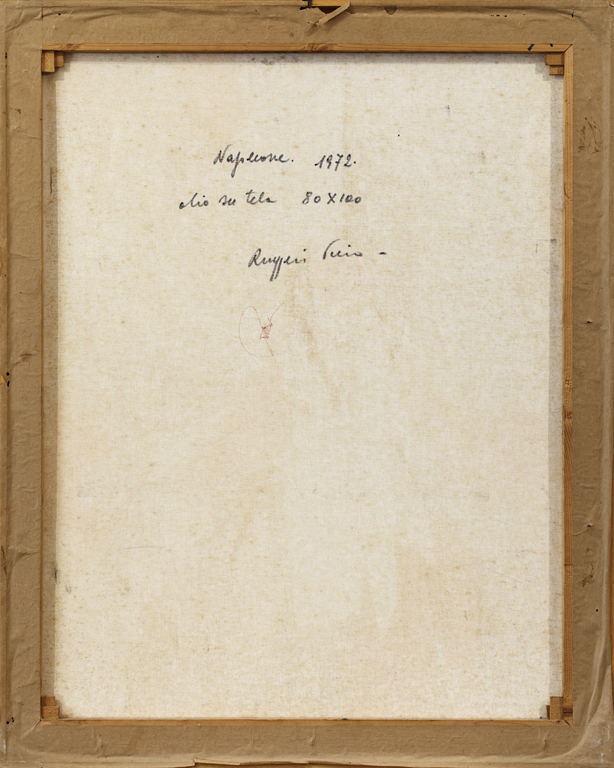 Napoleone. 1972.
olio su tela 80X100
Ruggeri Piero -